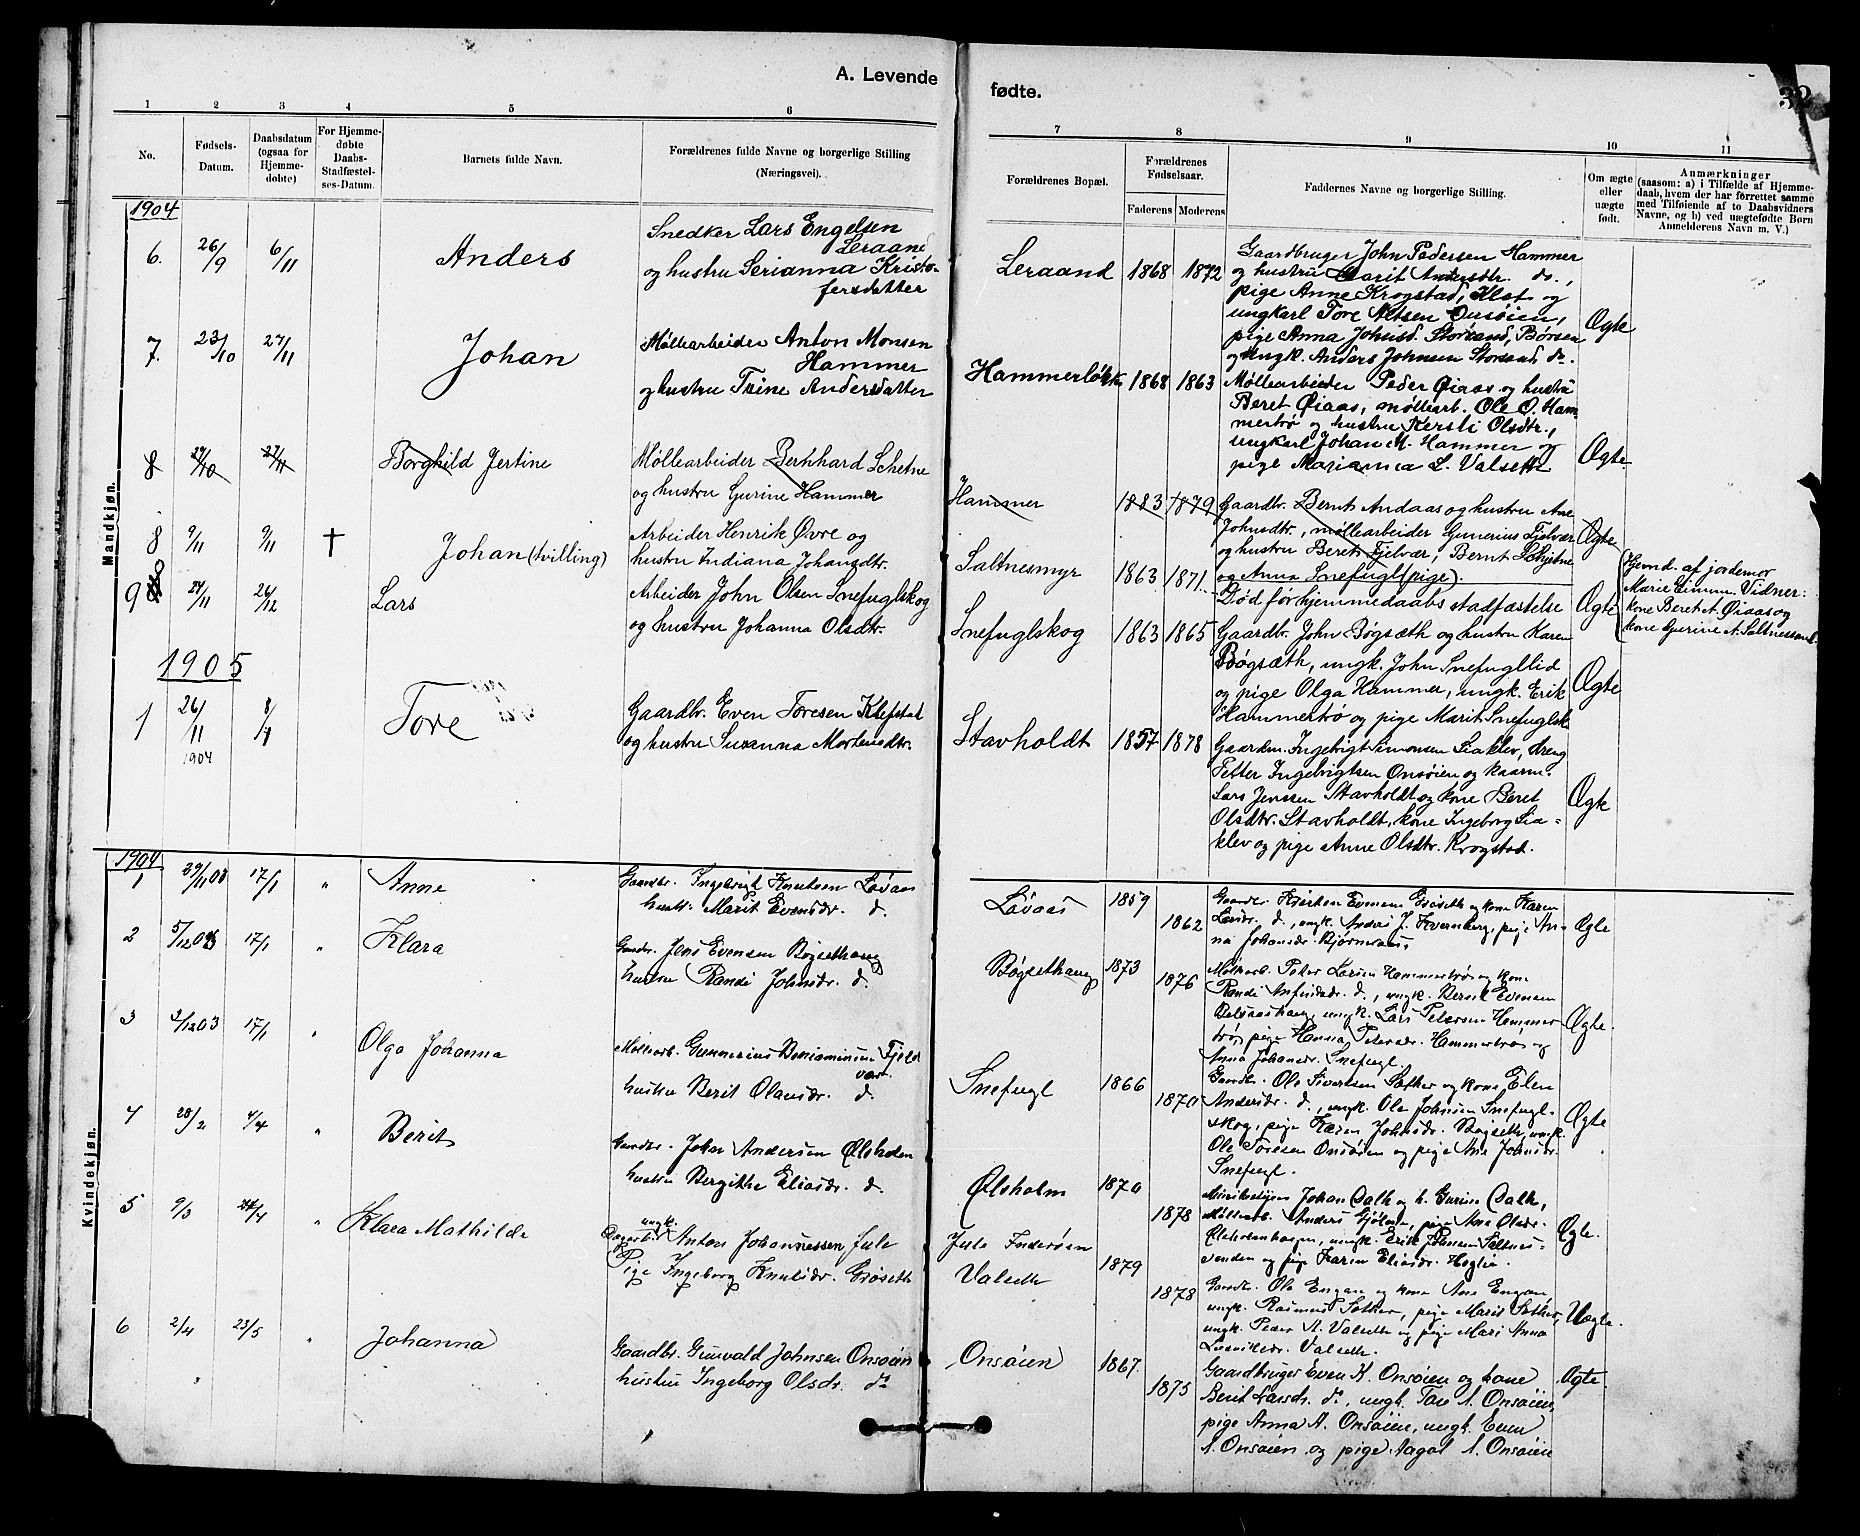 A. Levende
fødte.
32
1 2 3 4 5 6
7 8 9 10 11
No.
Fødsels-
Datum.
Daabsdatum
(ogsaa for
Hjemme-
døbte)
For Hjemme-
døbte
Daabs-
Stadfæstel-
ses-Datum.
Barnets fulde Navn.
Forældrenes fulde Navne og borgerlige Stilling
(Næringsvei).
Forældrenes Bopæl.
Forældrenes
Fødselsaar.
Faderens Moderens
Faddernes Navne og borgerlige Stilling.
Om ægte
eller
uægte
født.
Anmærkninger
(saasom: a) i Tilfælde af Hjemme-
daab, hvem der har forrettet samme
med Tilføiende af to Daabsvidners
Navne, og b) ved uægtefødte Børn
Anmelderens Navn m. V.)
Mandkjøn.
1904
6. 26/9 6/11 Anders
Snedker Lars Engelsen
Leraand
og hustru Serianna Kristo-
fersdatter
Leraand 1868 1872
Gaardbruger John Pedersen Hammer
og hustru Marit Andersdtr. do.,
pige Anne Krogstad, Klæt og
ungkarl Tore Altsen Onsøien,
pige Anna Johnsd. Storsand, Børsen
og ungk. Anders Johnsen Storsand do.
Ægte
7. 23/10 27/11 Johan
Møllearbeider Anton Monsen
Hammer
og hustru Trine Andersdatter
Hammerløkk 1868 1863
Møllearbeider Peder Øiaas og hustru
Beret Øiaas, møllearb. Ole O. Ham-
mertrø og hustru Kersti Olsdtr.,
ungkarl Johan M. Hammer og
pige Marianna L. Valseth
Ægte
8 27/10 27/11 Borghild Jertine
Møllearbeider Bernhard Schetne
og hustru Gurine Hammer
Hammer 1883 1879
Gaardbr. Bernt Andaas og hustru Ane
Johnsdtr., møllearbeider Gunerius Fjelvær
og hustru Beret Fjelvær, Bernt Schjetne
og Anna Snefugl (pige).
Ægte
8 9/11 9/11 † Johan (tvilling)
Arbeider Henrik Øvre og
hustru Indiana Johansdtr.
Saltnesmyr 1863 1871
Død før hjemmedaabs stadfæstelse
Ægte
Hjemd. af jordemor
Marie Eimun. Vidner:
kone Beret A. Øiaas og
kone Gurine A. Saltnessand.
9 24/11 26/12 Lars
Arbeider John Olsen Snefuglskog
og hustru Johanna Olsdtr.
Snefuglskog 1863 1865
Gaardbr. John Bøgsæth og hustru Karen
Bøgsæth, ungk. John Snefugllid
og pige Olga Hammer, ungk. Erik
Hammertrø og pige Marit Snefuglsk
Ægte
1905
1 26/11 1904 8/1 Tore
Gaardbr. Even Toresen Klefstad
og hustru Susanna Mortensdtr.
Stavholdt 1857 1878
Gaardm. Ingebrigt Simonsen Liaklev, dreng
Petter Ingebrigtsen Onsøien og kaarm.
Lars Jenssen Stavholdt og kone Beret
Olsdtr. Stavholdt, kone Ingeborg Lia-
klev og pige Anne Olsdtr. Krogstad.
Ægte
Kvindekjøn.
1904
1 29/11 03 17/1 " Anne
Gaardbr. Ingebrigt Knutsen Løvaas
hustr. Marit Evensdr. d.
Løvaas 1859 1862
Gaardbr. Kristen Evensen Grøseth og kone Karen
Larsdr. d., ungk. Anders J. Kvernberg, pige An-
na Johansdr. Bjørnraas.
Ægte
2 5/12 03 17/1 " Klara
Gaardbr. Jens Evensen Bøgsethaug
hustru Randi Johnsdr. d.
Bøgsethaug 1873 1876
Møllearb. Peter Larsen Hammertrø og kone
Randi Anfindsdr. d., ungk. Bernt Evensen
ungk. Lars Petersen Hammer-
trø, pige Hanna Petersdr. Hammertrø og
Anna Johansdr. Snefugl.
Ægte.
3 2/12 03 17/1 " Olga Johanna
Møllearb. Gunnerius Benjaminsen Fjeld-
vær.
hustru Berit Olausdr. d.
Snefugl 1866 1870
Gaardbr. Ole Sivertsen Sæther og kone Elen
Andersdr. d., ungk. Ole Johnsen Snefugl-
skog, pige Karen Johnsdr. Bøgseth, ungk.
Ole Toresen Onsøien og pige Ane Johnsdr.
Snefugl.
Ægte
4 28/2 4/4 " Berit
Gaardbr. John Andersen Ølsholm
hustru Bergithe Eliasdr. d.
Ølsholm 1870 1878
Johan Dalh og h. Gurine Dalh,
Møllearb. Anders Gjølme, pige Ane Olsdr.
ungk. Erik Johnsen Saltnes-
sanden og pige Karen Eliasdr. Høglie.
Ægte.
5 9/3 24/4 " Klara Mathilde
ungk.
Dagarb. Anton Johannessen Jule
Pige Ingeborg Knutsdr. Grøseth
Jule Inderøen
Valseth 1879 1878
Gaardbr. Ole Engan og kone Ane Engan,
ungk. Rasmus Sæther, pige Marit Sæther,
ungk. Peder A. Valseth og pige Mari Anna
Valseth.
Uægte.
6 2/4 23/5 " Johanna
Gaardbr. Gunvald Johnsen Onsøien
hustru Ingeborg Olsdr. do
Onsøien 1867. 1875
Gaardbruger Even K. Onsøien og kone
Berit Larsdr. do, ungk. Tore A. Onsøien,
pige Anna A. Onsøien, ungk. Even
A. Onsøien og pige Aagot A. Onsøien
Ægte.